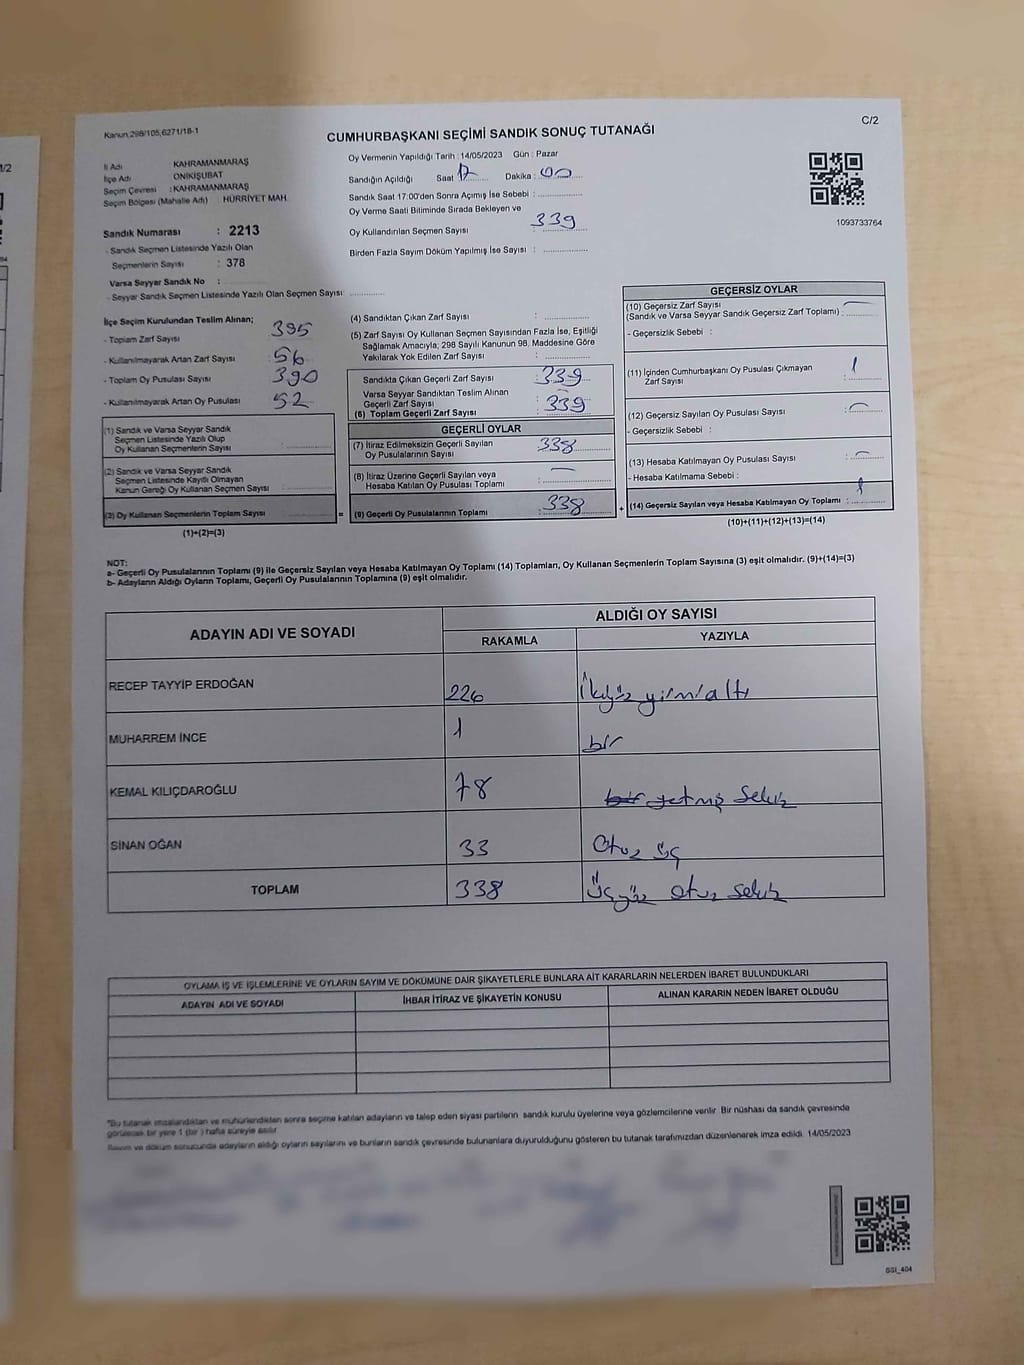 Kanun;298/105,6271/18-1
CUMHURBAŞKANI SEÇİMİ SANDIK SONUÇ TUTANAĞI
C/2
İl Adı KAHRAMANMARAŞ
İlçe Adı ONİKİŞUBAT
Seçim Çevresi : KAHRAMANMARAŞ
Seçim Bölgesi (Mahalle Adı) HÜRRİYET MAH.
Sandık Numarası : 2213
- Sandık Seçmen Listesinde Yazılı Olan
Seçmenlerin Sayısı : 378
Varsa Seyyar Sandık No :
- Seyyar Sandık Seçmen Listesinde Yazılı Olan Seçmen Sayısı:
Oy Vermenin Yapıldığı Tarih : 14/05/2023 Gün : Pazar
Sandığın Açıldığı Saat : 17 Dakika : 00
Sandık Saat 17:00'den Sonra Açımış İse Sebebi :
Oy Verme Saati Bitiminde Sırada Bekleyen ve
Oy Kullandırılan Seçmen Sayısı : 339
Birden Fazla Sayım Döküm Yapılmış İse Sayısı :
1093733764
İlçe Seçim Kurulundan Teslim Alınan;
- Toplam Zarf Sayısı : 395
- Kullanılmayarak Artan Zarf Sayısı : 56
- Toplam Oy Pusulası Sayısı : 390
- Kullanılmayarak Artan Oy Pusulası : 52
(1) Sandık ve Varsa Seyyar Sandık
Seçmen Listesinde Yazılı Olup
Oy Kullanan Seçmenlerin Sayısı :
(2) Sandık ve Varsa Seyyar Sandık
Seçmen Listesinde Kayıtlı Olmayan
Kanun Gereği Oy Kullanan Seçmen Sayısı :
(3) Oy Kullanan Seçmenlerin Toplam Sayısı =
(1)+(2)=(3)
(4) Sandıktan Çıkan Zarf Sayısı :
(5) Zarf Sayısı Oy Kullanan Seçmen Sayısından Fazla İse, Eşitliği
Sağlamak Amacıyla; 298 Sayılı Kanunun 98. Maddesine Göre
Yakılarak Yok Edilen Zarf Sayısı :
Sandıkta Çıkan Geçerli Zarf Sayısı : 339
Varsa Seyyar Sandıktan Teslim Alınan
Geçerli Zarf Sayısı :
(6) Toplam Geçerli Zarf Sayısı : 339
GEÇERLİ OYLAR
(7) İtiraz Edilmeksizin Geçerli Sayılan
Oy Pusulalarının Sayısı : 338
(8) İtiraz Üzerine Geçerli Sayılan veya
Hesaba Katılan Oy Pusulası Toplamı : —
(9) Geçerli Oy Pusulalarının Toplamı : 338 +
GEÇERSİZ OYLAR
(10) Geçersiz Zarf Sayısı
(Sandık ve Varsa Seyyar Sandık Geçersiz Zarf Toplamı) : —
- Geçersizlik Sebebi :
(11) İçinden Cumhurbaşkanı Oy Pusulası Çıkmayan
Zarf Sayısı : 1
(12) Geçersiz Sayılan Oy Pusulası Sayısı : —
- Geçersizlik Sebebi :
(13) Hesaba Katılmayan Oy Pusulası Sayısı : —
- Hesaba Katılmama Sebebi :
(14) Geçersiz Sayılan veya Hesaba Katılmayan Oy Toplamı : 1
(10)+(11)+(12)+(13)=(14)
NOT:
a- Geçerli Oy Pusulalarının Toplamı (9) ile Geçersiz Sayılan veya Hesaba Katılmayan Oy Toplamı (14) Toplamları, Oy Kullanan Seçmenlerin Toplam Sayısına (3) eşit olmalıdır. (9)+(14)=(3)
b- Adayların Aldığı Oyların Toplamı, Geçerli Oy Pusulalarının Toplamına (9) eşit olmalıdır.
ADAYIN ADI VE SOYADI
ALDIĞI OY SAYISI
RAKAMLA YAZIYLA
RECEP TAYYİP ERDOĞAN 226 ikiyüz yirmialtı
MUHARREM İNCE 1 bir
KEMAL KILIÇDAROĞLU 78 bir yetmiş sekiz
SİNAN OĞAN 33 Otuz üç
TOPLAM 338 üçyüz otuz sekiz
OYLAMA İŞ VE İŞLEMLERİNE VE OYLARIN SAYIM VE DÖKÜMÜNE DAİR ŞİKAYETLERLE BUNLARA AİT KARARLARIN NELERDEN İBARET BULUNDUKLARI
ADAYIN ADI VE SOYADI İHBAR İTİRAZ VE ŞİKAYETİN KONUSU ALINAN KARARIN NEDEN İBARET OLDUĞU
*Bu tutanak imzalandıktan ve mühürlendikten sonra seçime katılan adayların ve talep eden siyasi partilerin sandık kurulu üyelerine veya gözlemcilerine verilir. Bir nüshası da sandık çevresinde
görülecek bir yere 1 (bir ) hafta süreyle asılır.
Sayım ve döküm sonucunda adayların aldığı oyların sayılarını ve bunların sandık çevresinde bulunanlara duyurulduğunu gösteren bu tutanak tarafımızdan düzenlenerek imza edildi. 14/05/2023
SSI_404